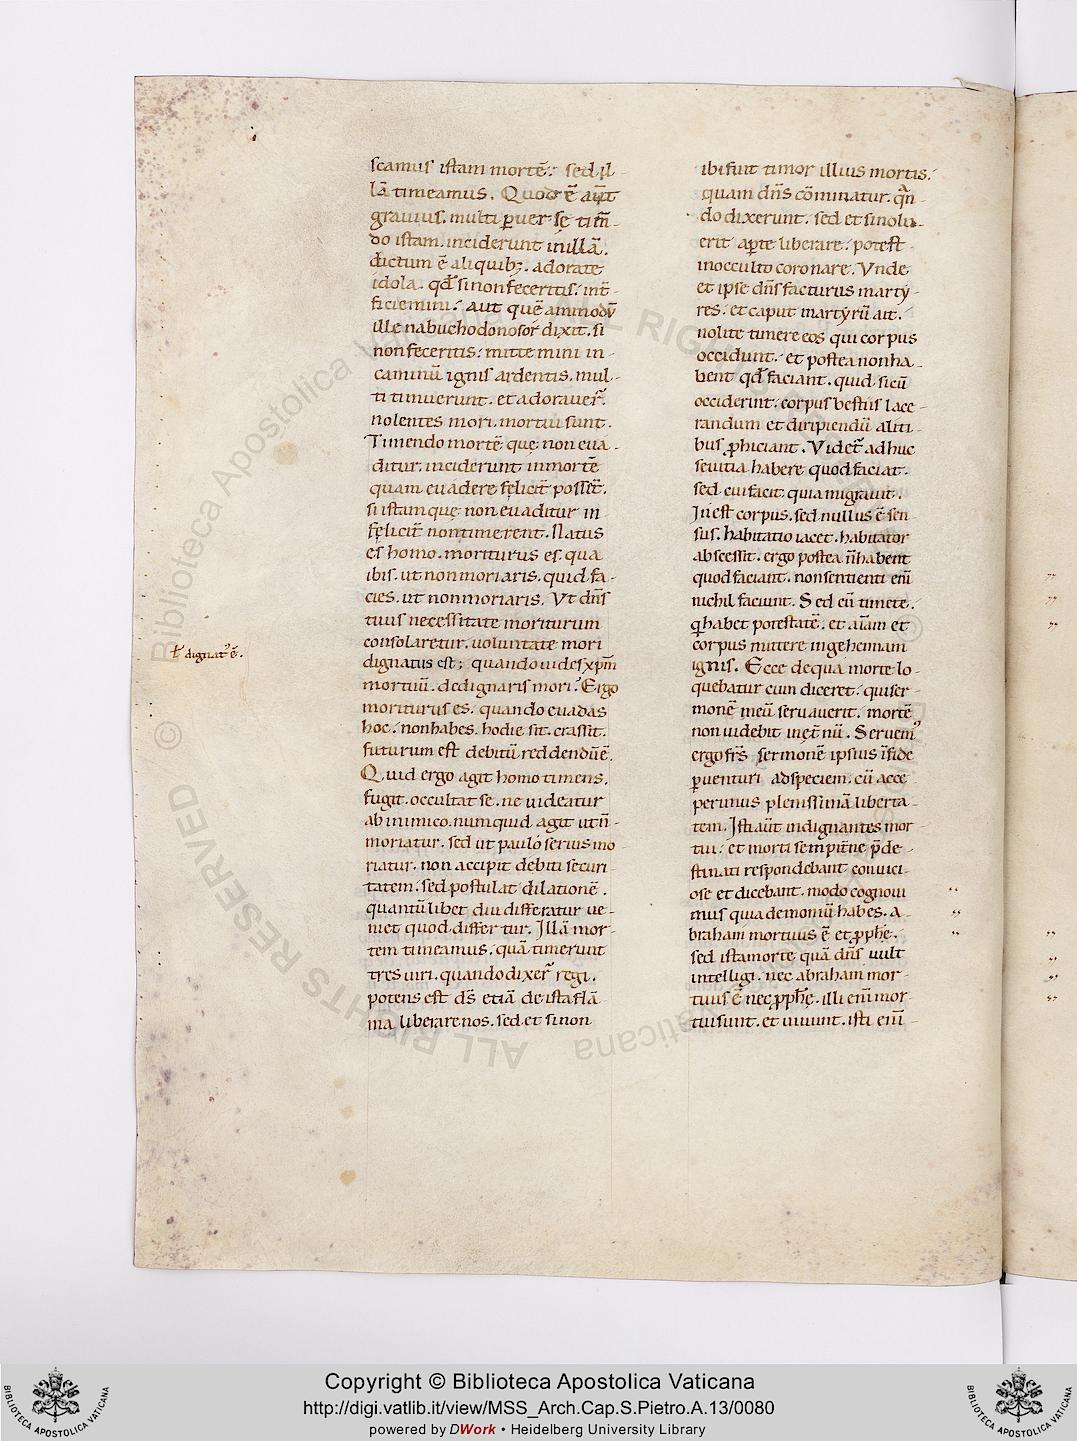 scamus istam mortē. sed il
lā timeamus. Quod ē aut̄
grauius. multi ꝑuersę tim̄
do istam. inciderunt in illā.
dictum ē aliquibꝫ. adorate
idola. qđ si non feceritis. int̄
ficiemini. aut quēammodū
ille nabuchodonosor dixit. si
non feceritis. mitte mini in
caminū ignis ardentis. mul
ti timuerunt. et adorauer̄.
nolentes mori. mortui sunt.
Timendo mortē quę non eua
ditur. inciderunt in mortē
quam euadere felicit̄ possēt.
si istam quę non euaditur in
felicit̄ non timerent. Natus
es homo. moriturus es. qua
ibis. ut non moriaris. quid fa
cies. ut non moriaris. Ut dn̄s
tuus necessitate moriturum
consolaretur. uoluntate mori
dignatus est; quando uides xp̄m
mortuū. dedignaris mori. Ergo
moriturus es. quando euadas
hoc. non habes. hodie sit. cras sit.
futurum est debitū reddendū ē.
Quid ergo agit homo timens.
fugit. occultat se. ne uideatur
ab inimico. numquid agit ut n̄
moriatur. sed ut paulo serius mo
riatur. non accipit debiti securi
tatem. sed postulat dilationē.
quantū libet diu differatur ue
niet quod differtur. Illā mor
tem timeamus. quā timerunt
tres uiri. quando dixer̄ regi.
potens est dē etiā de ista flā
ma liberare nos. sed et si non
ł dignat᾽ ē.
ibi fuit timor illius mortis.
quam dn̄s cōminatur. qn̄
do dixerunt. sed et si nolu
erit aꝑte liberare. potest
in occulto coronare. Vnde
et ipse dn̄s facturus marty
res. et caput martyrū ait.
nolite timere eos qui corpus
occidunt. et postea non ha
bent qđ faciant. quid sicū
occiderint. corpus bestiis lace
randum et diripiendū aliti
bus ꝓhiciant. Videt̄ adhuc
seuitia habere quod faciat.
sed cui facit. quia migrauit.
Inest corpus. sed nullus ē sen
sus. habitatio iacet. habitator
abscessit. ergo postea n̄ habent
quod faciant. non sentienti enī
nichil faciunt. Sed eū timete.
q̄ habet potestatē. et aīam et
corpus mittere in gehennam
ignis. Ecce de qua morte lo
quebatur cum diceret. qui ser
monē meū seruauerit. mortē
non uidebit in ęt̄nū. Seruem᾽
ergo fr̄s sermonē ipsius in fide
ꝑuenturi ad speciem. cū acce
perimus plenissimā liberta
tem. Isti aut̄ indignantes mor
tui. et morti sempit̄ne p̄de
stinati respondebant conuici
ose et dicebant. modo cognoui
mus quia demoniū habes. A
braham mortuus ē et ꝓphę.
sed ista morte quā dn̄s uult
intelligi. nec abraham mor
tuus ē nec ꝓphę. illi enī mor
tui sunt. et uiuunt. isti enī
© Biblioteca Apostolica Vaticana ALL RIGHTS RESERVED
Copyright © Biblioteca Apostolica Vaticana
http://digi.vatlib.it/view/MSS_Arch.Cap.S.Pietro.A.13/0080
powered by DWork • Heidelberg University Library
BIBLIOTECA APOSTOLICA VATICANA
BIBLIOTECA APOSTOLICA VATICANA